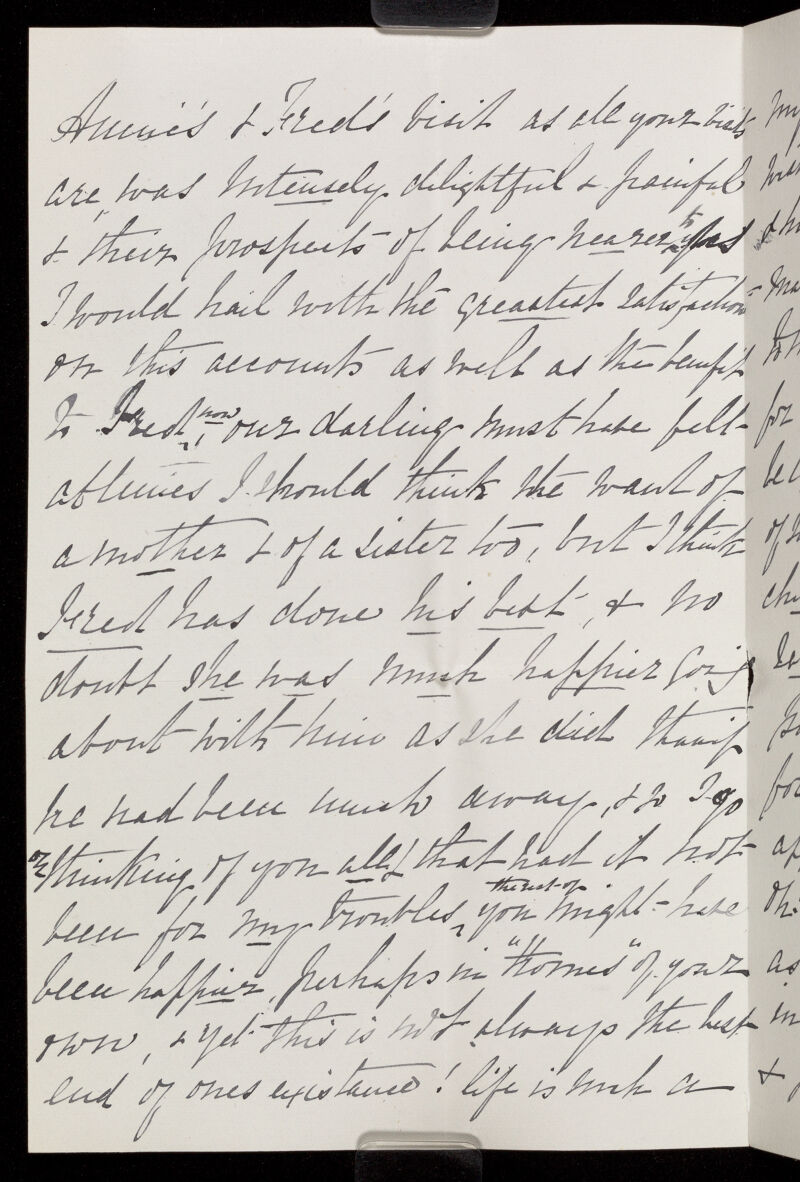 Annie's & Fred's visit as all your visits
are, was intensely delightful & painful
& their prospects of being nearer to you
I would hail with the greatest satisfaction
on this account as well as the benefit
to Fred, now our darling must have felt
at times I should think the want of
a mother & of a sister too, but I think
Fred has done his best, & no
doubt she was much happier going
about with him as she did than if
he had been much away, & so I go
on thinking of you all! that had it not
been for my troubles, the rest of you might have
been happier, perhaps in "Homes" of your
own, & yet this is not always the best
end of ones existance! life is such a
my
&
for
of
as
in
&